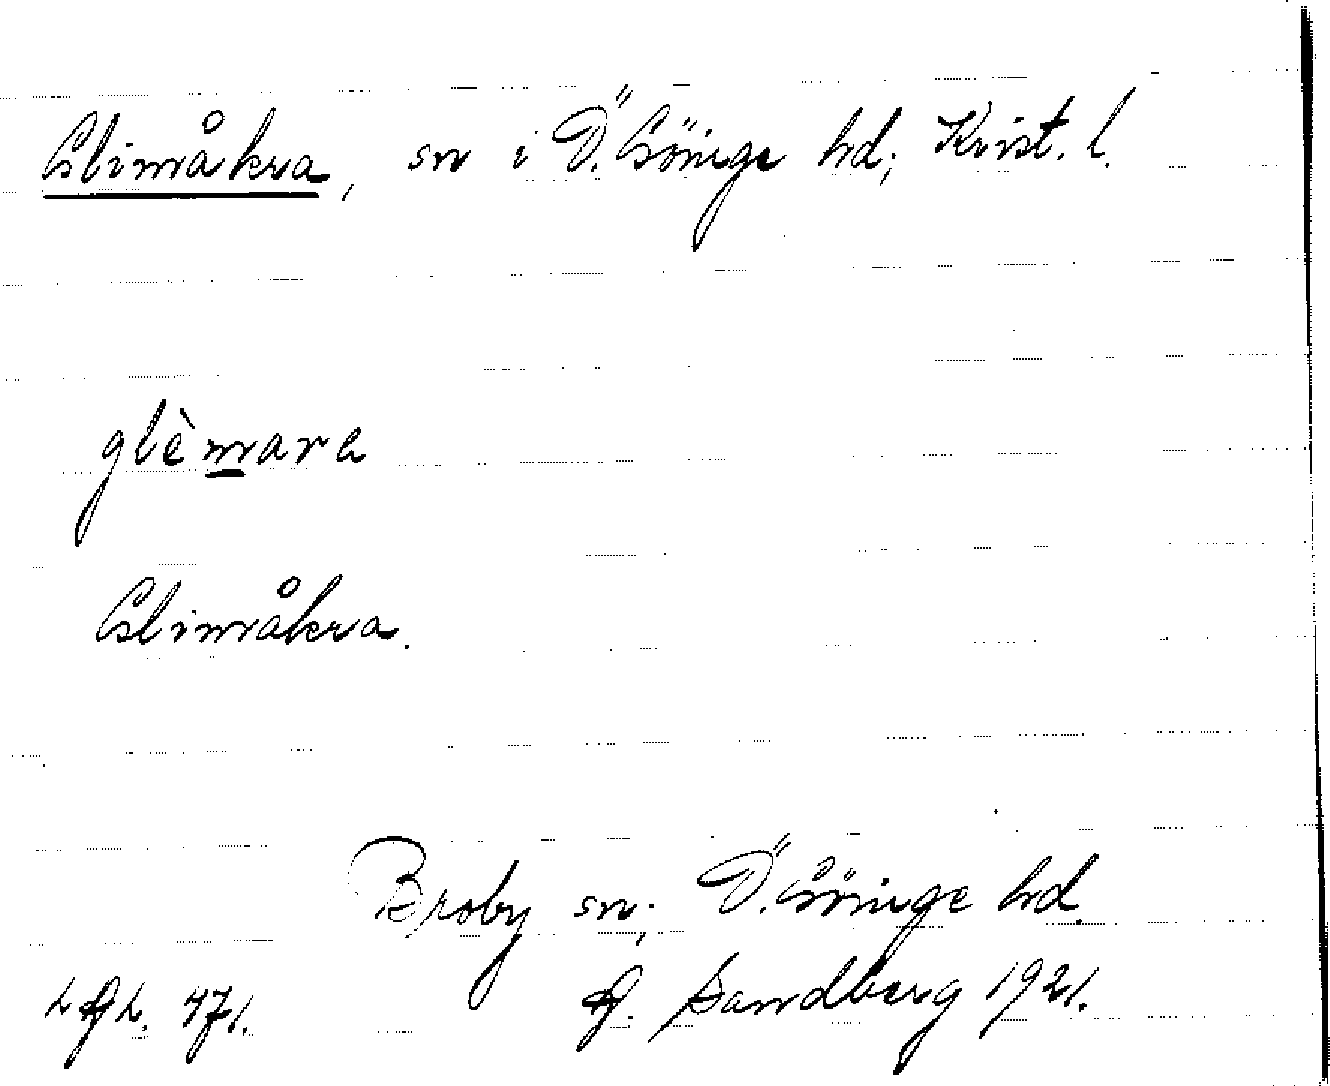 Glimåkra, sn i Ö. Göinge hd; Krist. l.
glèmara
Glimåkra.
Broby sn; Ö. Göinge hd.
471. Sandberg 1921.